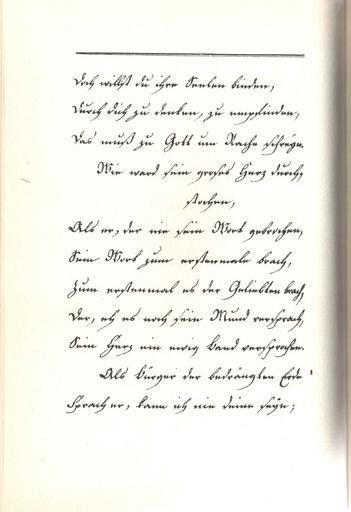 Doch willst du ihre Seelen binden,
Durch dich zu denken, zu empfinden,
Das muß zu Gott um Rache schreyn.
Wie ward sein groses Herz durch-
stochen,
Als er, der nie sein Wort gebrochen,
Sein Wort zum erstenmale brach,
Zum erstenmal es der Geliebten brach,
Der, eh es noch sein Mund versprach,
Sein Herz ein ewig Band versprochen.
Als Bürger der bedrängten Erde
Sprach er, kann ich nie deine seyn;